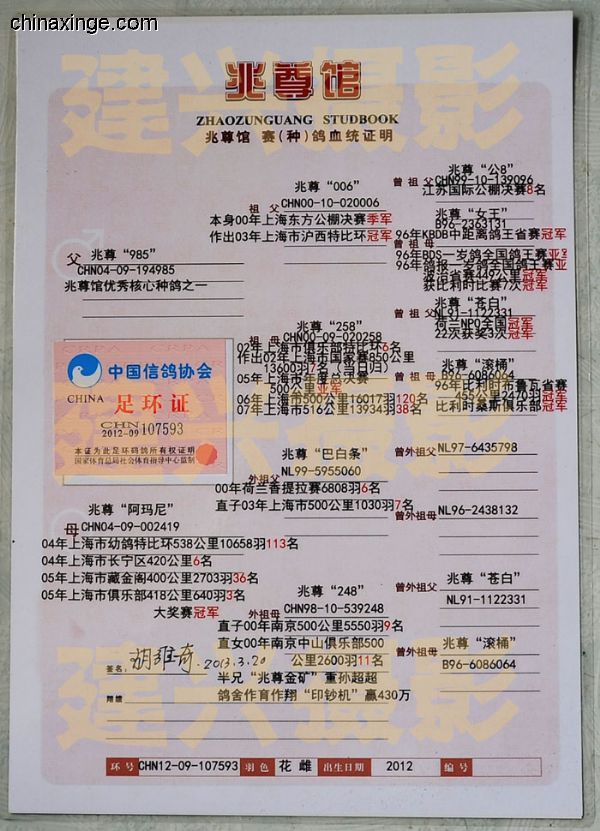 chinaxinge.com
chinaxinge.com
建兴摄影
兆尊馆
ZHAOZUNGUANG STUDBOOK
兆尊馆 赛(种)鸽血统证明
兆尊“公8”
曾祖父 CHN99-10-139096
江苏国际公棚决赛8名
兆尊“006”
祖父 CHN00-10-020006
本身00年上海东方公棚决赛季军
作出03年上海市沪西特比环冠军
兆尊“女王”
B96-2363131
曾祖母
96年KBDB中距离鸽王省赛冠军
96年BDS一岁鸽全国鸽王赛亚军
96年鸽报一岁鸽全国鸽王赛亚
波治省赛449公里冠军
获比利时比赛7次冠军
兆尊“985”
父 CHN04-09-194985
兆尊馆优秀核心种鸽之一
兆尊“苍白”
曾祖父 NL91-1122331
荷兰NPO全国冠军
22次获奖3次冠军
兆尊“258”
祖母 CHN00-09-020258
02年上海市俱乐部特比环6名
作出02年上海市国家赛850公里
13600羽7名(当日归)
05年上海市年度总决赛
500公里亚军
06年上海市500公里16017羽120名
07年上海市516公里13934羽38名
兆尊“滚桶”
曾祖母 B96-6086064
96年比利时布鲁瓦省赛
455公里2470羽冠军
比利时桑斯俱乐部冠军
中国信鸽协会
CHINA 足环证
CHN
2012-09 107593
本证为此足环码鸽所有权证明
国家体育总局社会体育指导中心监制
建兴摄影
兆尊“巴白条”
外祖父 NL99-5955060
00年荷兰香提拉赛6808羽6名
直子03年上海市500公里1030羽7名
曾外祖父 NL97-6435798
曾外祖母 NL96-2438132
兆尊“阿玛尼”
母 CHN04-09-002419
04年上海市幼鸽特比环538公里10658羽113名
04年上海市长宁区420公里6名
05年上海市藏金阁400公里2703羽36名
05年上海市俱乐部418公里640羽3名
大奖赛冠军
兆尊“248”
外祖母 CHN98-10-539248
直子00年南京500公里5550羽9名
直女00年南京中山俱乐部500
公里2600羽11名
半兄“兆尊金矿”重孙超超
鸽舍作育作翔“印钞机”赢430万
兆尊“苍白”
曾外祖父 NL91-1122331
兆尊“滚桶”
曾外祖母 B96-6086064
签名: 胡维奇 2013.3.20
翔绩
建兴摄影
环号 CHN12-09-107593 羽色 花 雌 出生日期 2012 编号